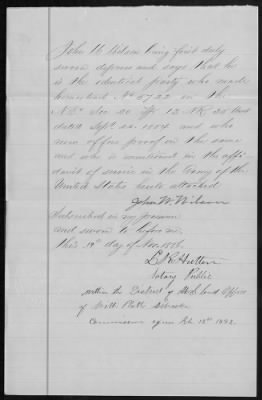 John W. Wilson being first duly
sworn deposes and says that he
is the identical party who made
homestead No 5722 in the
NE¼ Sec 20 Tp 12 N R 25 West
dated Sept. 1884 and who
now offers proof on the same
and who is mentioned in the affi-
davit of service in the Army of the
United States hereto attached
John W. Wilson
Subscribed in my presence
and sworn to before me
this 19th day of Nov. 1886.
L R Hutton
Notary Public
within the District of U.S. land Office
of North Platte Nebraska
Commission expires Feb 18th 1892.